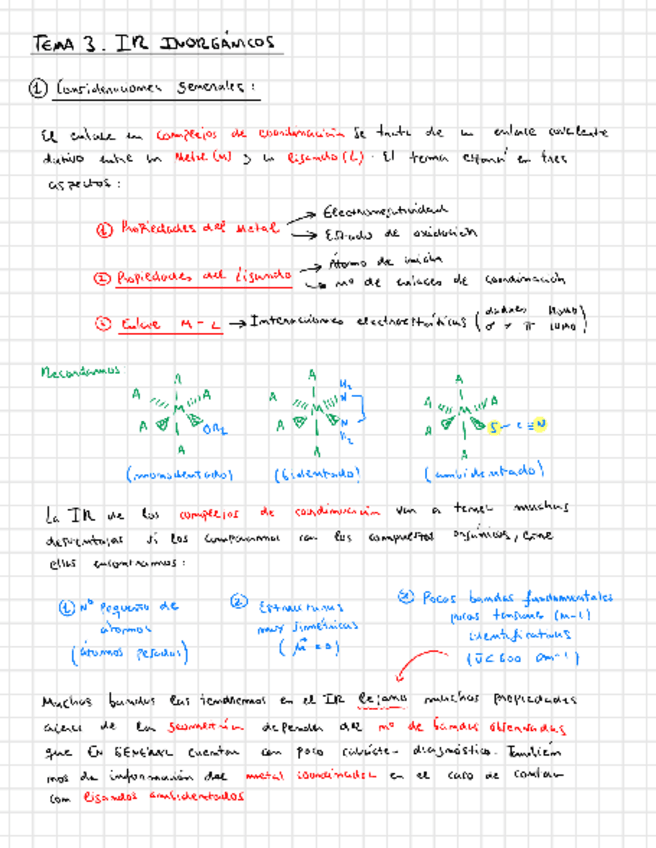 TEMA 3. IR INORGÁNICOS
① Consideraciones Generales:
El enlace en complejos de coordinación se trata de un enlace covalente
dativo entre un Metal (M) y un ligando (L). El tema en tres
aspectos:
① Propiedades del Metal → Electronegatividad
→ Estado de oxidación
② Propiedades del Ligando → Átomo de unión
→ nº de enlaces de coordinación
③ Enlace M-L → Interacciones electrostáticas (dadores HOMO
σ y π LUMO)
Recordamos:
A A A A A M OR₂
A A A A M H₂ N N H₂
A A A A A M S - C ≡ N
(monodentado) (bidentado) (ambidentado)
La IR de los complejos de coordinación van a tener muchas
desventajas si los comparamos con los compuestos orgánicos, entre
ellas encontramos:
① Nº Pequeño de
átomos
(átomos pesados)
② Estructuras
muy simétricas
③ Pocas bandas fundamentales
pocas tensiones (M-L)
identificativas
(ν̄ < 600 cm⁻¹)
Muchas bandas las tendremos en el IR lejano muchas propiedades
acerca de la geometría dependen del nº de bandas observadas
que EN GENERAL cuentan con poco carácter diagnóstico. También
nos da información del metal coordinador en el caso de contar
con ligandos ambidentados